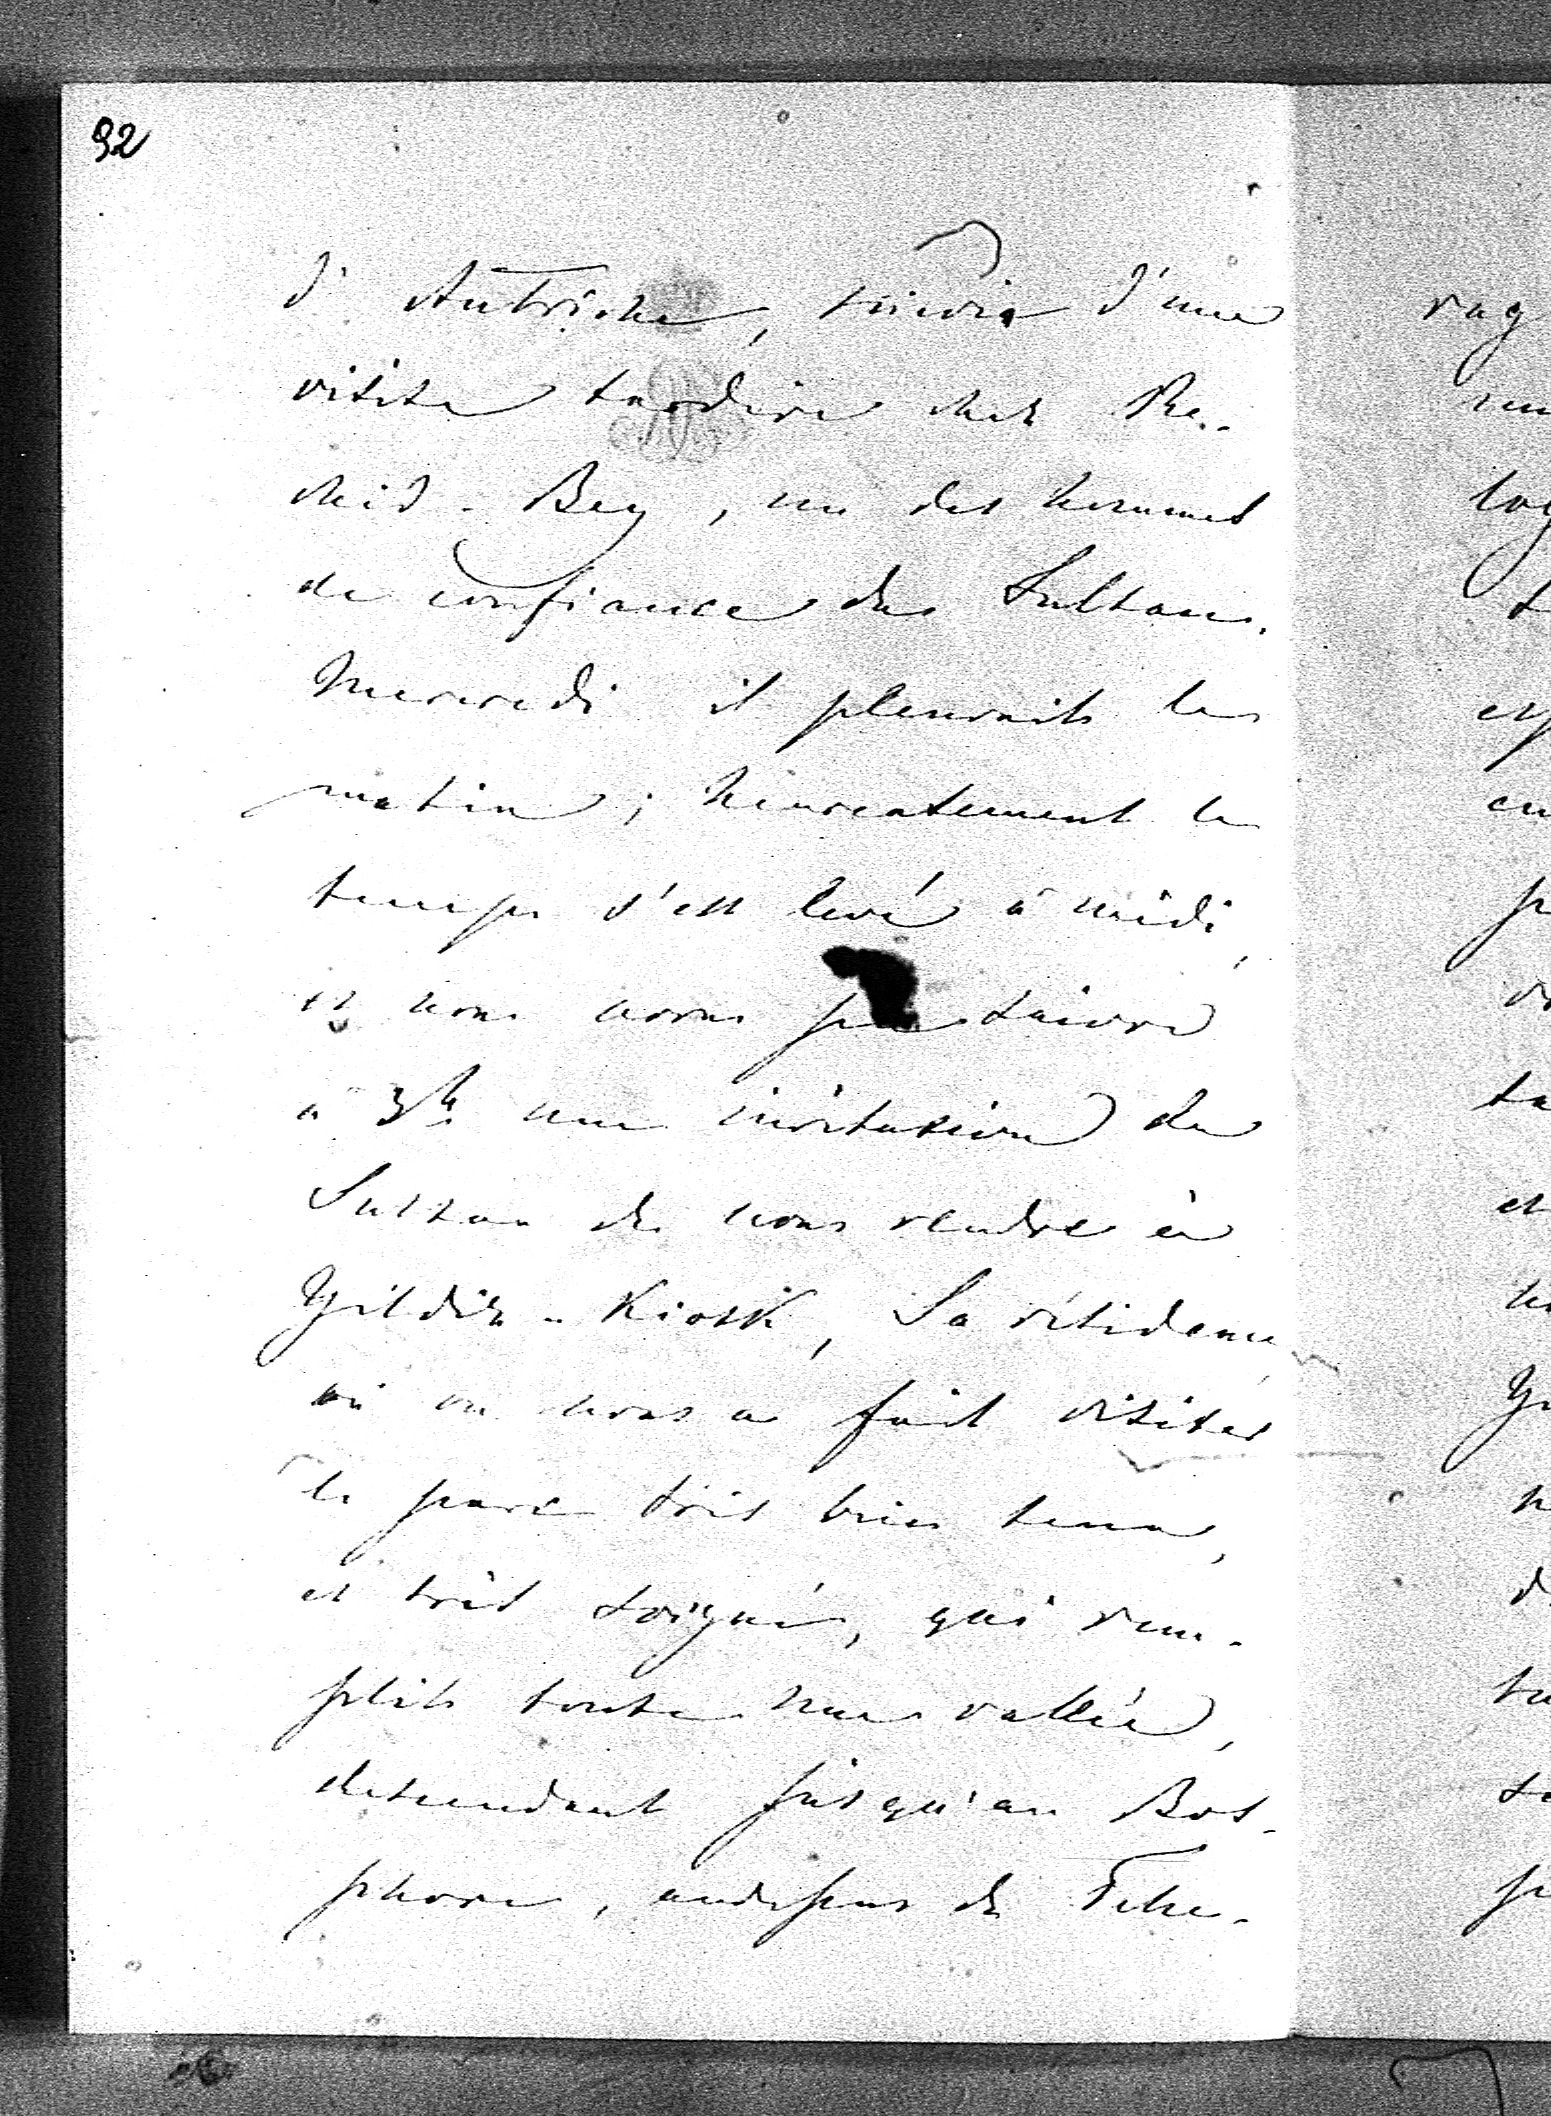 92
d'Autriche, suivie d'une
visite tardive chez Re-
chid-Bey, un des hommes
de confiance du Sultan.
Mercredi il pleuvait le
matin; heureusement le
temps s'est levé à midi,
et nous avons pu suivre
à 3h. une invitation du
Sultan de nous rendre à
Yildiz-Kiosk, Sa résidence,
où on nous a fait visiter
le parc très bien tenu,
et très soigné, qui rem-
plit toute une vallée,
descendant jusqu'au Bos-
phore, audessus de Tche-
rag